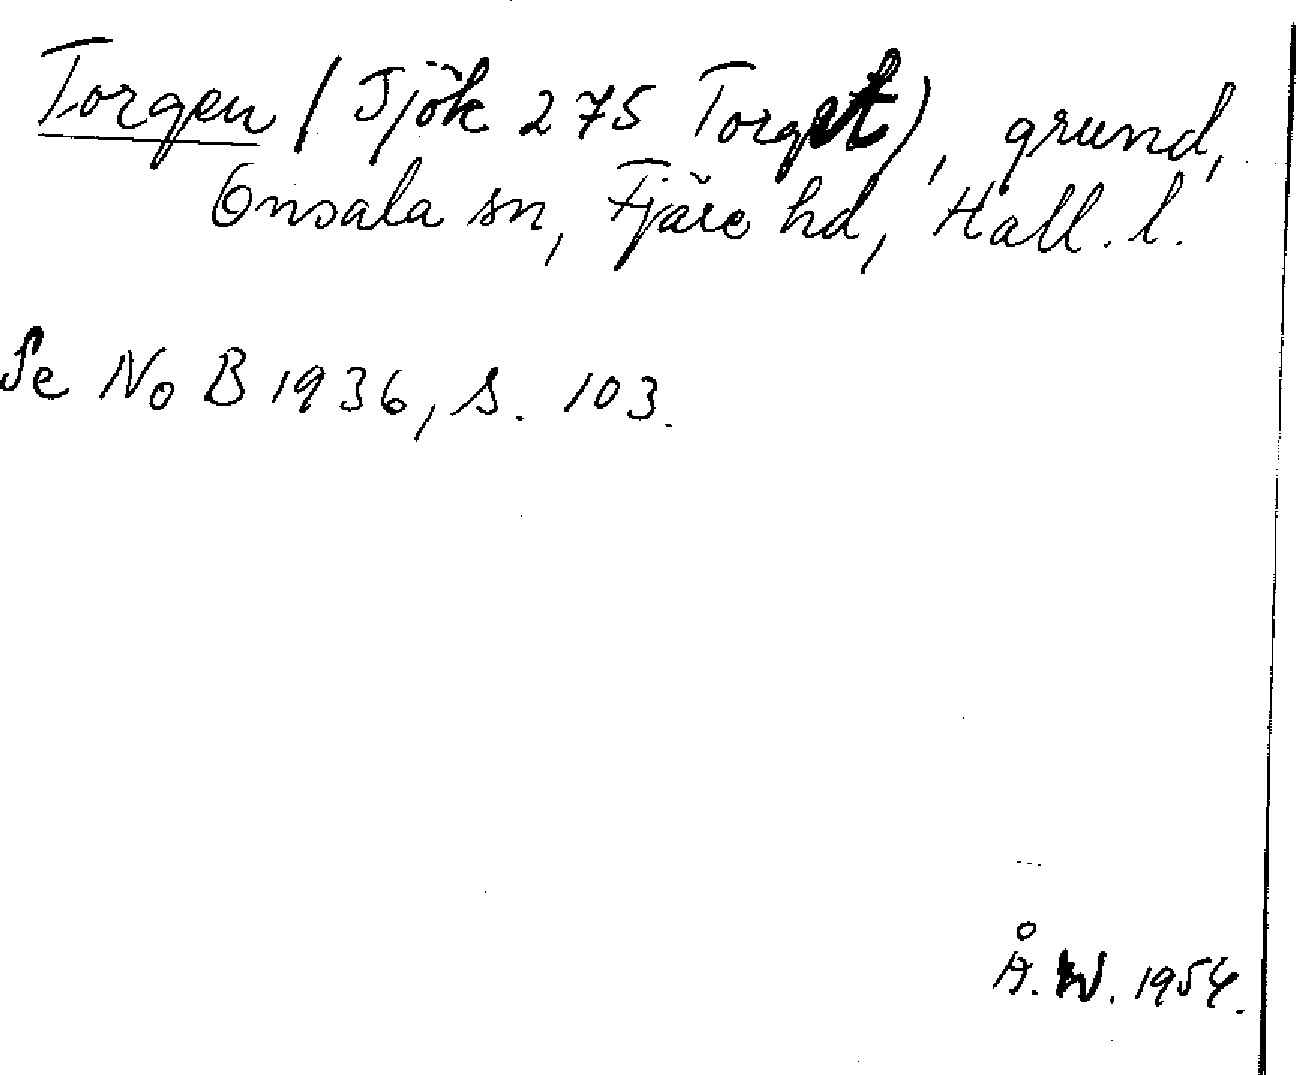 Torgen (Sjök 275 Torget), grund,
Onsala sn, Fjäre hd, Hall. l.
Se NoB 1936, s. 103.
Å.W. 1954.